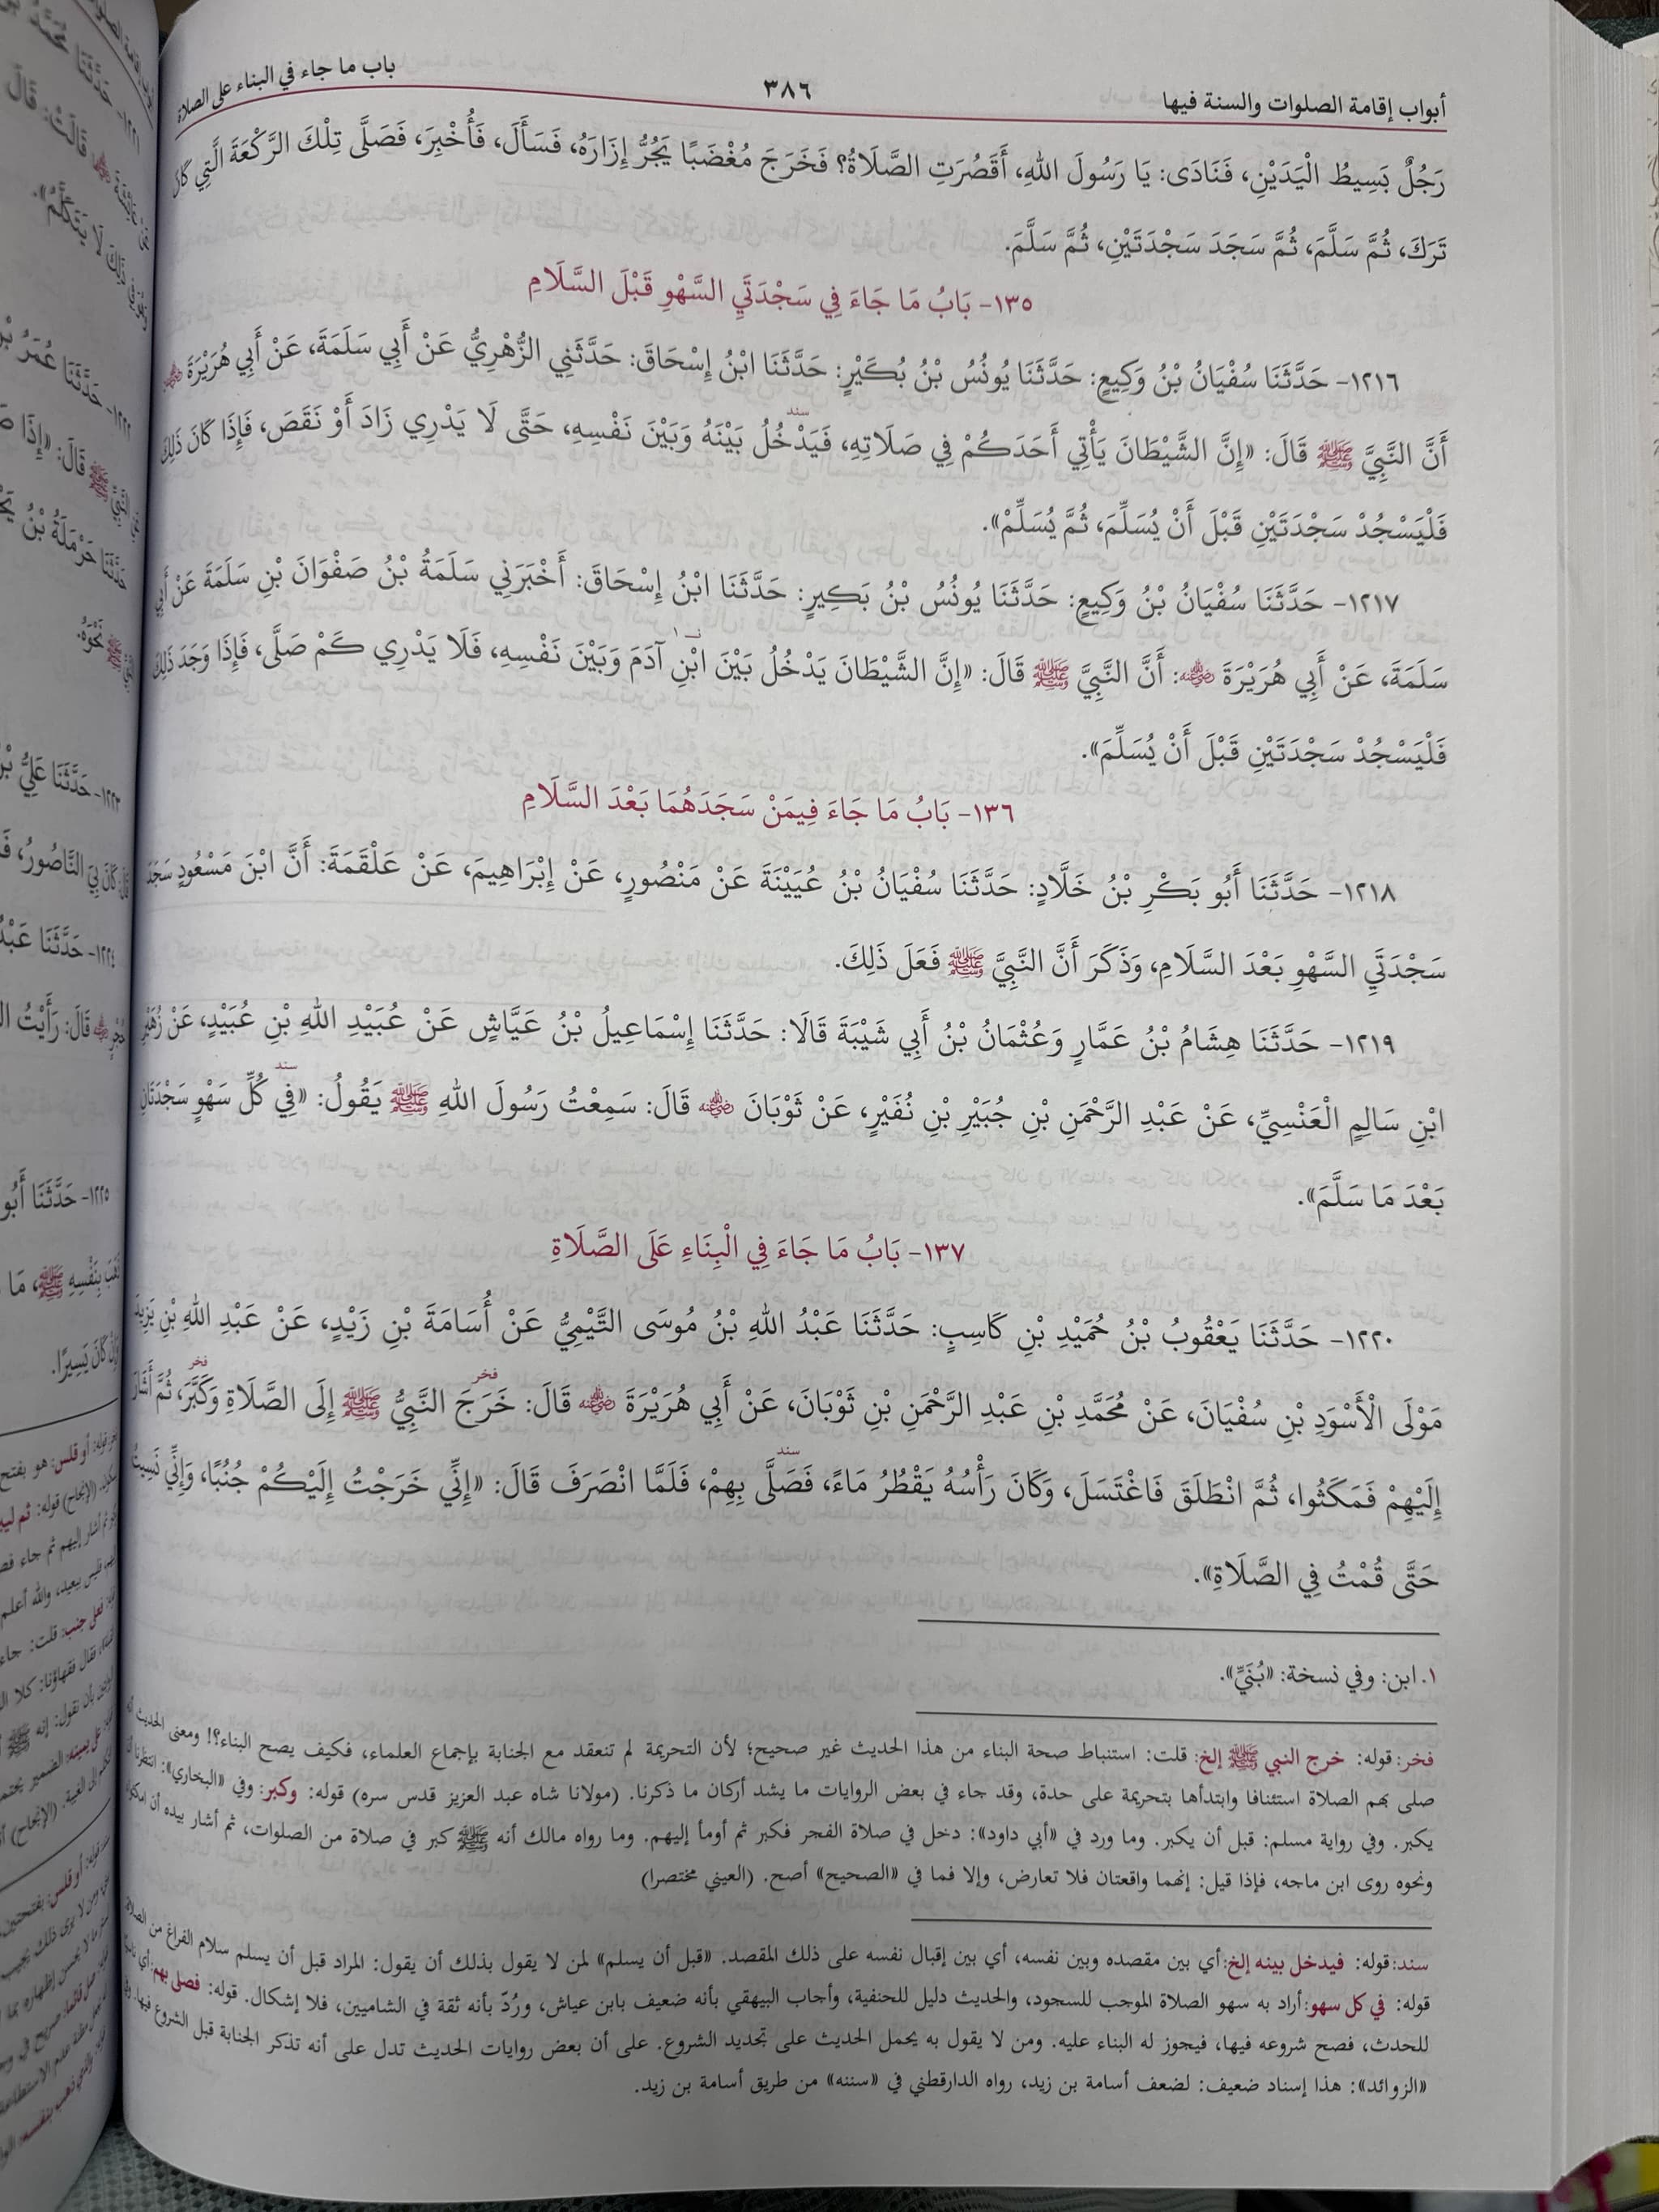 أبواب إقامة الصلوات والسنة فيها
٣٨٦
باب ما جاء في البناء على الصلاة
رَجُلٌ بَسِيطُ الْيَدَيْنِ، فَنَادَى: يَا رَسُولَ اللهِ، أَقَصُرَتِ الصَّلَاةُ؟ فَخَرَجَ مُغْضَبًا يَجُرُّ إِزَارَهُ، فَسَأَلَ، فَأُخْبِرَ، فَصَلَّى تِلْكَ الرَّكْعَةَ الَّتِي كَانَ
تَرَكَ، ثُمَّ سَلَّمَ، ثُمَّ سَجَدَ سَجْدَتَيْنِ، ثُمَّ سَلَّمَ.
١٣٥- بَابُ مَا جَاءَ فِي سَجْدَتَيِ السَّهْوِ قَبْلَ السَّلَامِ
١٢١٦- حَدَّثَنَا سُفْيَانُ بْنُ وَكِيعٍ: حَدَّثَنَا يُونُسُ بْنُ بُكَيْرٍ: حَدَّثَنَا ابْنُ إِسْحَاقَ: حَدَّثَنِي الزُّهْرِيُّ عَنْ أَبِي سَلَمَةَ، عَنْ أَبِي هُرَيْرَةَ ﵁
سند
أَنَّ النَّبِيَّ ﷺ قَالَ: «إِنَّ الشَّيْطَانَ يَأْتِي أَحَدَكُمْ فِي صَلَاتِهِ، فَيَدْخُلُ بَيْنَهُ وَبَيْنَ نَفْسِهِ، حَتَّى لَا يَدْرِي زَادَ أَوْ نَقَصَ، فَإِذَا كَانَ ذَلِكَ
فَلْيَسْجُدْ سَجْدَتَيْنِ قَبْلَ أَنْ يُسَلِّمَ، ثُمَّ يُسَلِّمْ».
١٢١٧- حَدَّثَنَا سُفْيَانُ بْنُ وَكِيعٍ: حَدَّثَنَا يُونُسُ بْنُ بَكِيرٍ: حَدَّثَنَا ابْنُ إِسْحَاقَ: أَخْبَرَنِي سَلَمَةُ بْنُ صَفْوَانَ بْنِ سَلَمَةَ عَنْ أَبِي
سَلَمَةَ، عَنْ أَبِي هُرَيْرَةَ ﵁: أَنَّ النَّبِيَّ ﷺ قَالَ: «إِنَّ الشَّيْطَانَ يَدْخُلُ بَيْنَ ابْنِ١ آدَمَ وَبَيْنَ نَفْسِهِ، فَلَا يَدْرِي كَمْ صَلَّى، فَإِذَا وَجَدَ ذَلِكَ
فَلْيَسْجُدْ سَجْدَتَيْنِ قَبْلَ أَنْ يُسَلِّمَ».
١٣٦- بَابُ مَا جَاءَ فِيمَنْ سَجَدَهُمَا بَعْدَ السَّلَامِ
١٢١٨- حَدَّثَنَا أَبُو بَكْرِ بْنُ خَلَّادٍ: حَدَّثَنَا سُفْيَانُ بْنُ عُيَيْنَةَ عَنْ مَنْصُورٍ، عَنْ إِبْرَاهِيمَ، عَنْ عَلْقَمَةَ: أَنَّ ابْنَ مَسْعُودٍ سَجَدَ
سَجْدَتَيِ السَّهْوِ بَعْدَ السَّلَامِ، وَذَكَرَ أَنَّ النَّبِيَّ ﷺ فَعَلَ ذَلِكَ.
١٢١٩- حَدَّثَنَا هِشَامُ بْنُ عَمَّارٍ وَعُثْمَانُ بْنُ أَبِي شَيْبَةَ قَالَا: حَدَّثَنَا إِسْمَاعِيلُ بْنُ عَيَّاشٍ عَنْ عُبَيْدِ اللهِ بْنِ عُبَيْدٍ، عَنْ زُهَيْرِ
سند
ابْنِ سَالِمٍ الْعَنْسِيِّ، عَنْ عَبْدِ الرَّحْمَنِ بْنِ جُبَيْرِ بْنِ نُفَيْرٍ، عَنْ ثَوْبَانَ ﵁ قَالَ: سَمِعْتُ رَسُولَ اللهِ ﷺ يَقُولُ: «فِي كُلِّ سَهْوٍ سَجْدَتَانِ
بَعْدَ مَا سَلَّمَ».
١٣٧- بَابُ مَا جَاءَ فِي الْبِنَاءِ عَلَى الصَّلَاةِ
١٢٢٠- حَدَّثَنَا يَعْقُوبُ بْنُ حُمَيْدِ بْنِ كَاسِبٍ: حَدَّثَنَا عَبْدُ اللهِ بْنُ مُوسَى التَّيْمِيُّ عَنْ أُسَامَةَ بْنِ زَيْدٍ، عَنْ عَبْدِ اللهِ بْنِ يَزِيدَ
فخر فخر
مَوْلَى الْأَسْوَدِ بْنِ سُفْيَانَ، عَنْ مُحَمَّدِ بْنِ عَبْدِ الرَّحْمَنِ بْنِ ثَوْبَانَ، عَنْ أَبِي هُرَيْرَةَ ﵁ قَالَ: خَرَجَ النَّبِيُّ ﷺ إِلَى الصَّلَاةِ وَكَبَّرَ، ثُمَّ أَشَارَ
سند
إِلَيْهِمْ فَمَكَثُوا، ثُمَّ انْطَلَقَ فَاغْتَسَلَ، وَكَانَ رَأْسُهُ يَقْطُرُ مَاءً، فَصَلَّى بِهِمْ، فَلَمَّا انْصَرَفَ قَالَ: «إِنِّي خَرَجْتُ إِلَيْكُمْ جُنُبًا، وَإِنِّي نَسِيتُ
حَتَّى قُمْتُ فِي الصَّلَاةِ».
١. ابن: وفي نسخة: «بُنَيِّ».
فخر: قوله: خرج النبي ﷺ إلخ: قلت: استنباط صحة البناء من هذا الحديث غير صحيح؛ لأن التحريمة لم تنعقد مع الجنابة بإجماع العلماء، فكيف يصح البناء؟! ومعنى الحديث أنه
صلى بهم الصلاة استئنافا وابتدأها بتحريمة على حدة، وقد جاء في بعض الروايات ما يشد أركان ما ذكرنا. (مولانا شاه عبد العزيز قدس سره) قوله: وكبر: وفي «البخاري»: انتظرنا أن
يكبر. وفي رواية مسلم: قبل أن يكبر. وما ورد في «أبي داود»: دخل في صلاة الفجر فكبر ثم أومأ إليهم. وما رواه مالك أنه ﷺ كبر في صلاة من الصلوات، ثم أشار بيده أن امكثوا
ونحوه روى ابن ماجه، فإذا قيل: إنهما واقعتان فلا تعارض، وإلا فما في «الصحيح» أصح. (العيني مختصرا)
سند: قوله: فيدخل بينه إلخ: أي بين مقصده وبين نفسه، أي بين إقبال نفسه على ذلك المقصد. «قبل أن يسلم» لمن لا يقول بذلك أن يقول: المراد قبل أن يسلم سلام الفراغ من الصلاة
قوله: في كل سهو: أراد به سهو الصلاة الموجب للسجود، والحديث دليل للحنفية، وأجاب البيهقي بأنه ضعيف بابن عياش، ورُدّ بأنه ثقة في الشاميين، فلا إشكال. قوله: فصلى بهم: أي
للحدث، فصح شروعه فيها، فيجوز له البناء عليه. ومن لا يقول به يحمل الحديث على تجديد الشروع. على أن بعض روايات الحديث تدل على أنه تذكر الجنابة قبل الشروع فيها.
«الزوائد»: هذا إسناد ضعيف: لضعف أسامة بن زيد، رواه الدارقطني في «سننه» من طريق أسامة بن زيد.